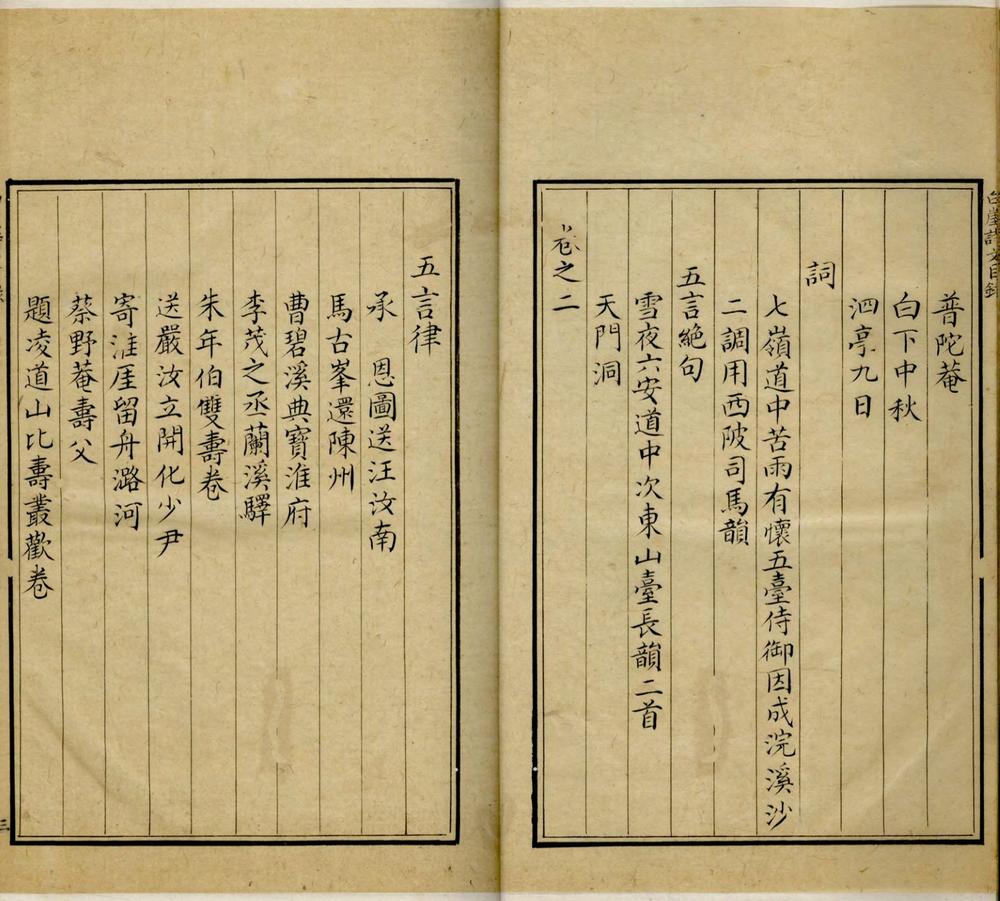 普陀菴
白下中秋
泗亭九日
詞
七嶺道中苦雨有懷五臺侍御因成浣溪沙
二調用西陂司馬韻
五言絕句
雪夜六安道中次東山臺長韻二首
天門洞
卷之二
五言律
承　恩圖送汪汝南
馬古峯還陳州
曹碧溪典寶淮府
李茂之丞蘭溪驛
朱年伯雙壽卷
送嚴汝立開化少尹
寄淮厓留舟潞河
蔡野菴壽父
題凌道山比壽叢歡卷
三